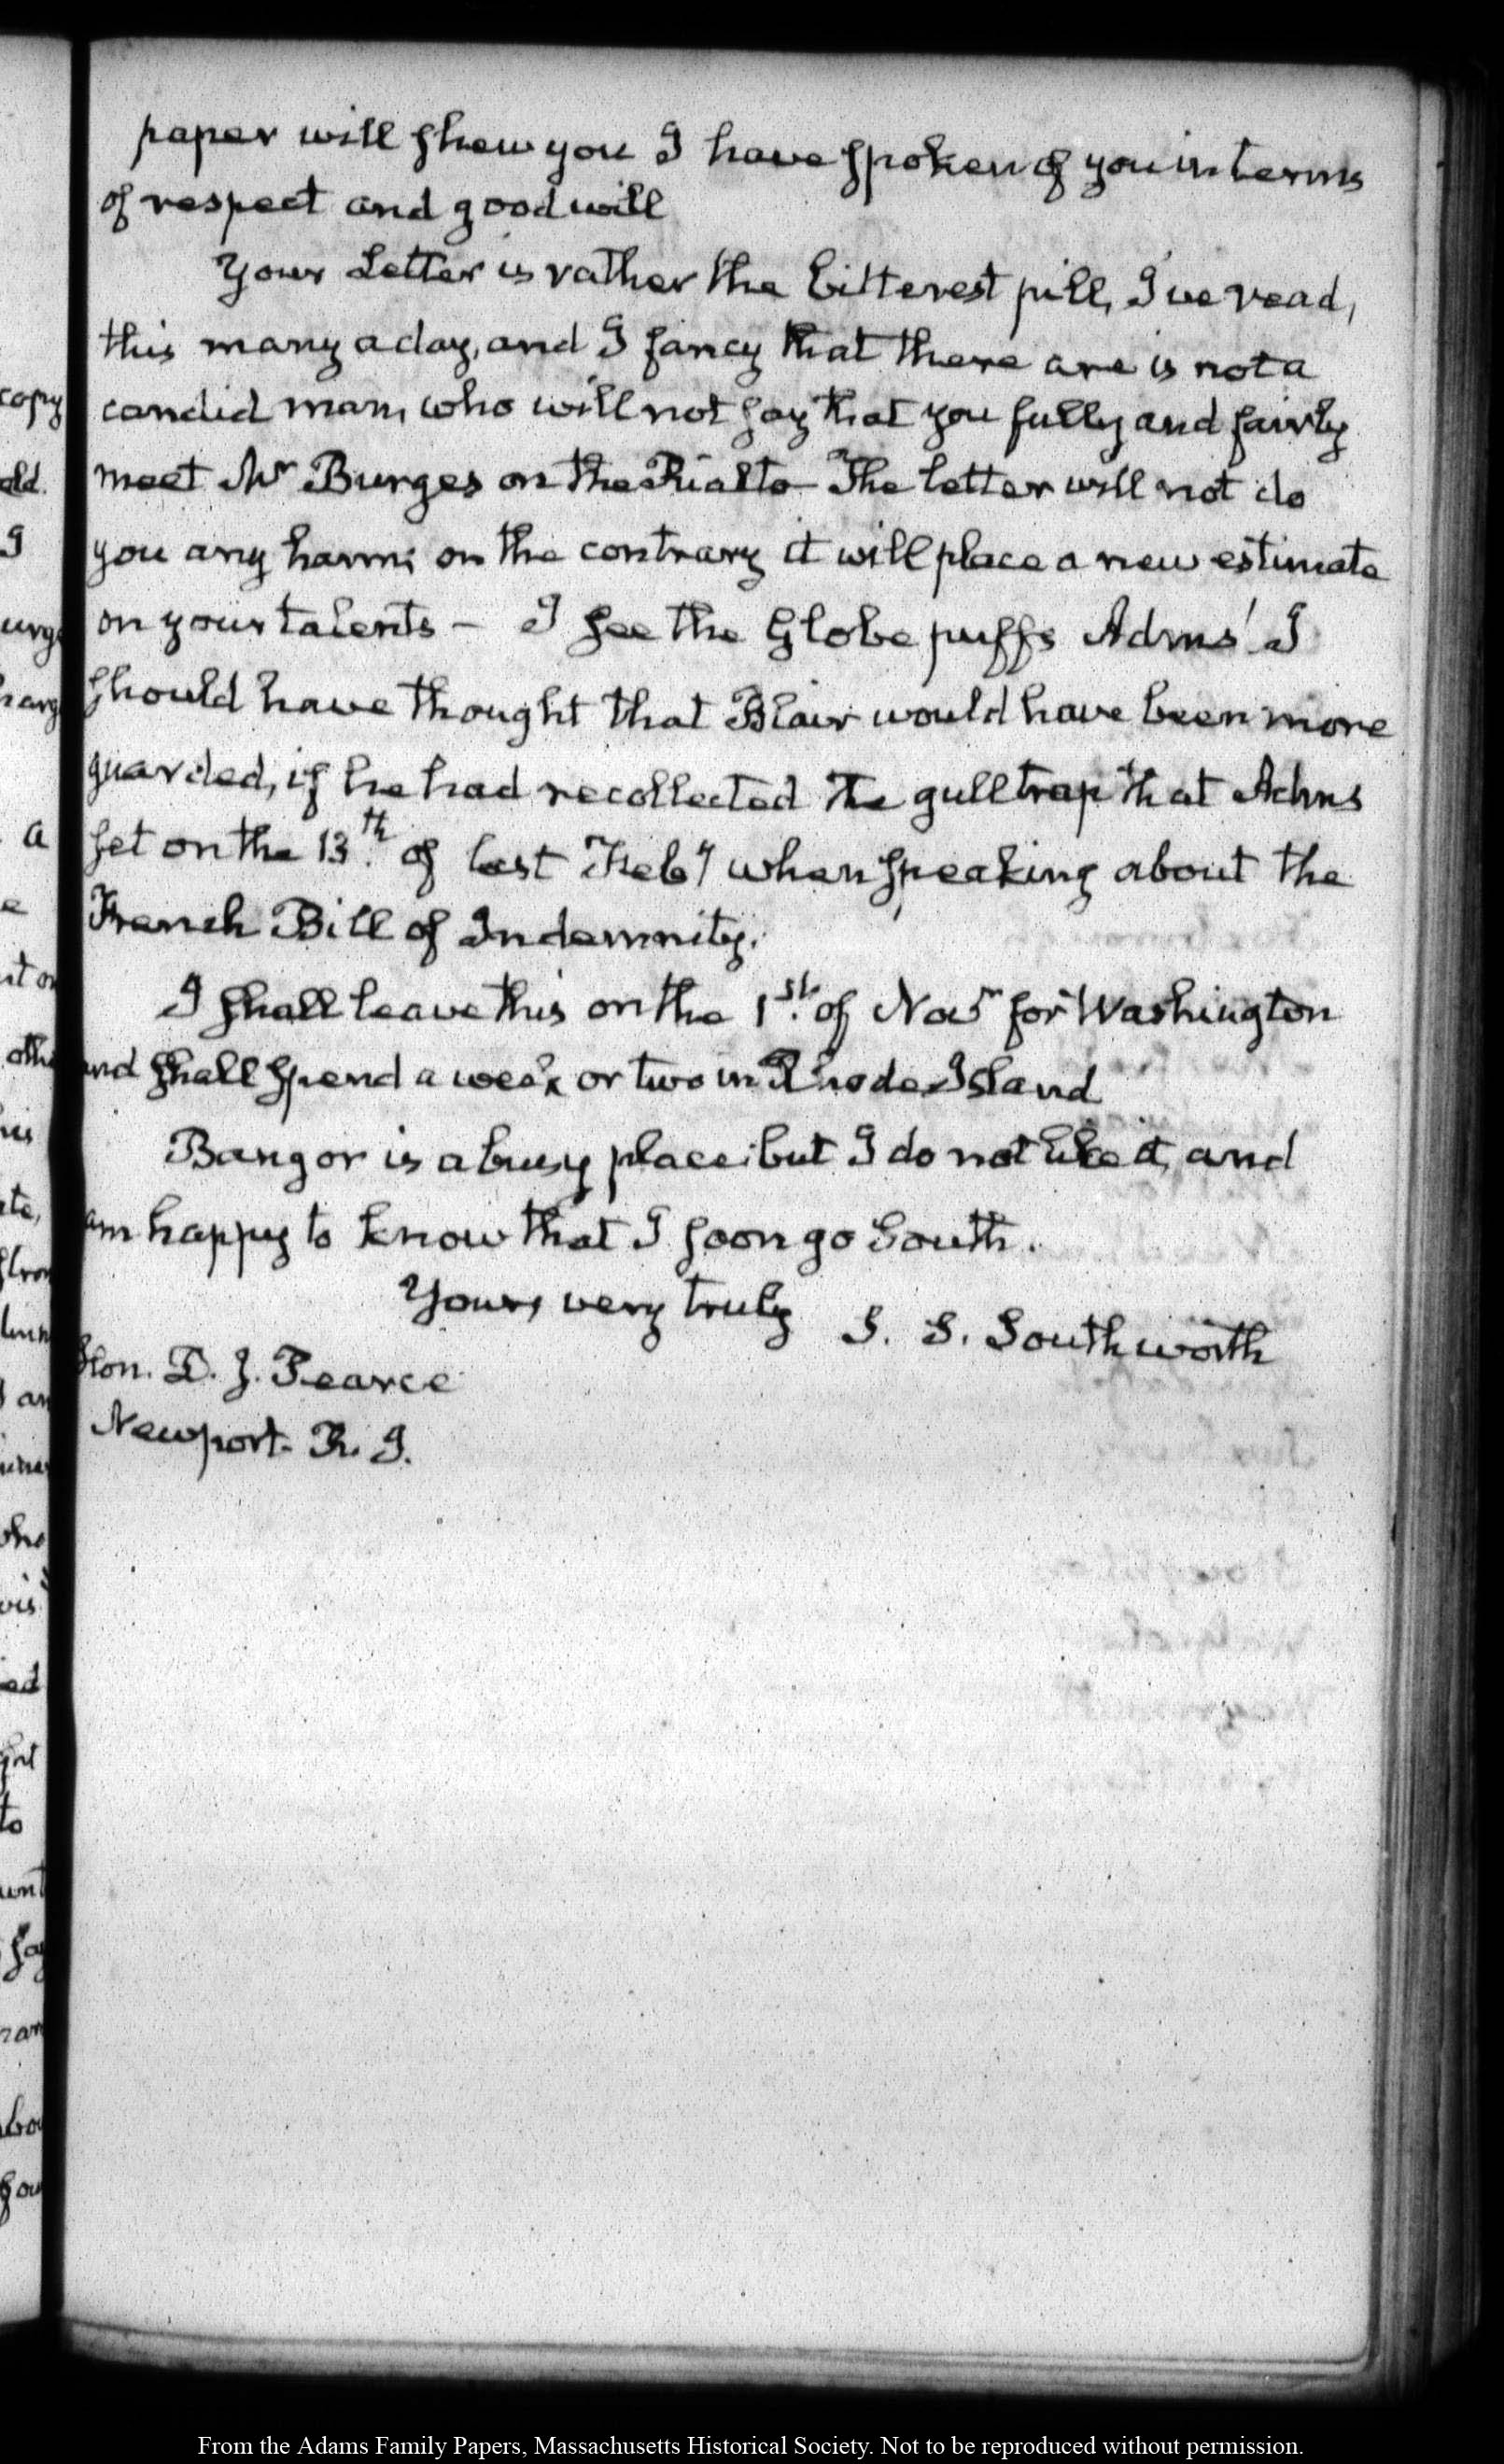 paper will shew you I have spoken of you in terms
of respect and good will
Your Letter is rather the bitterest pill, I've read,
this many a day, and I fancy that there are is not a
candid man, who will not say that you fully and fairly
meet Mr Burges on the Rialto— The letter will not do
you any harm; on the contrary it will place a new estimate
on your talents – I see the Globe puffs Adms' I
should have thought that Blair would have been more
guarded, if he had recollected the gull trap that Adms
set on the 13th. of last Feby when speaking about the
French Bill of Indemnity.
I shall leave this on the 1st. of Novr for Washington
and shall spend a week or two in Rhode Island
Bangor is a busy place; but I do not like it, and
am happy to know that I soon go South.
Yours very truly S. S. Southworth
Hon. D. J. Pearce
Newport. R. I.
From the Adams Family Papers, Massachusetts Historical Society. Not to be reproduced without permission.